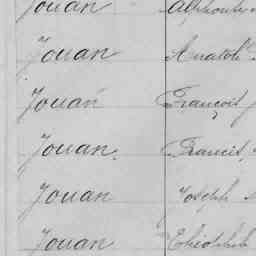 Jouan Alphonse
Jouan Anatole
Jouan François
Jouan Francis
Jouan Joseph
Jouan Théophile